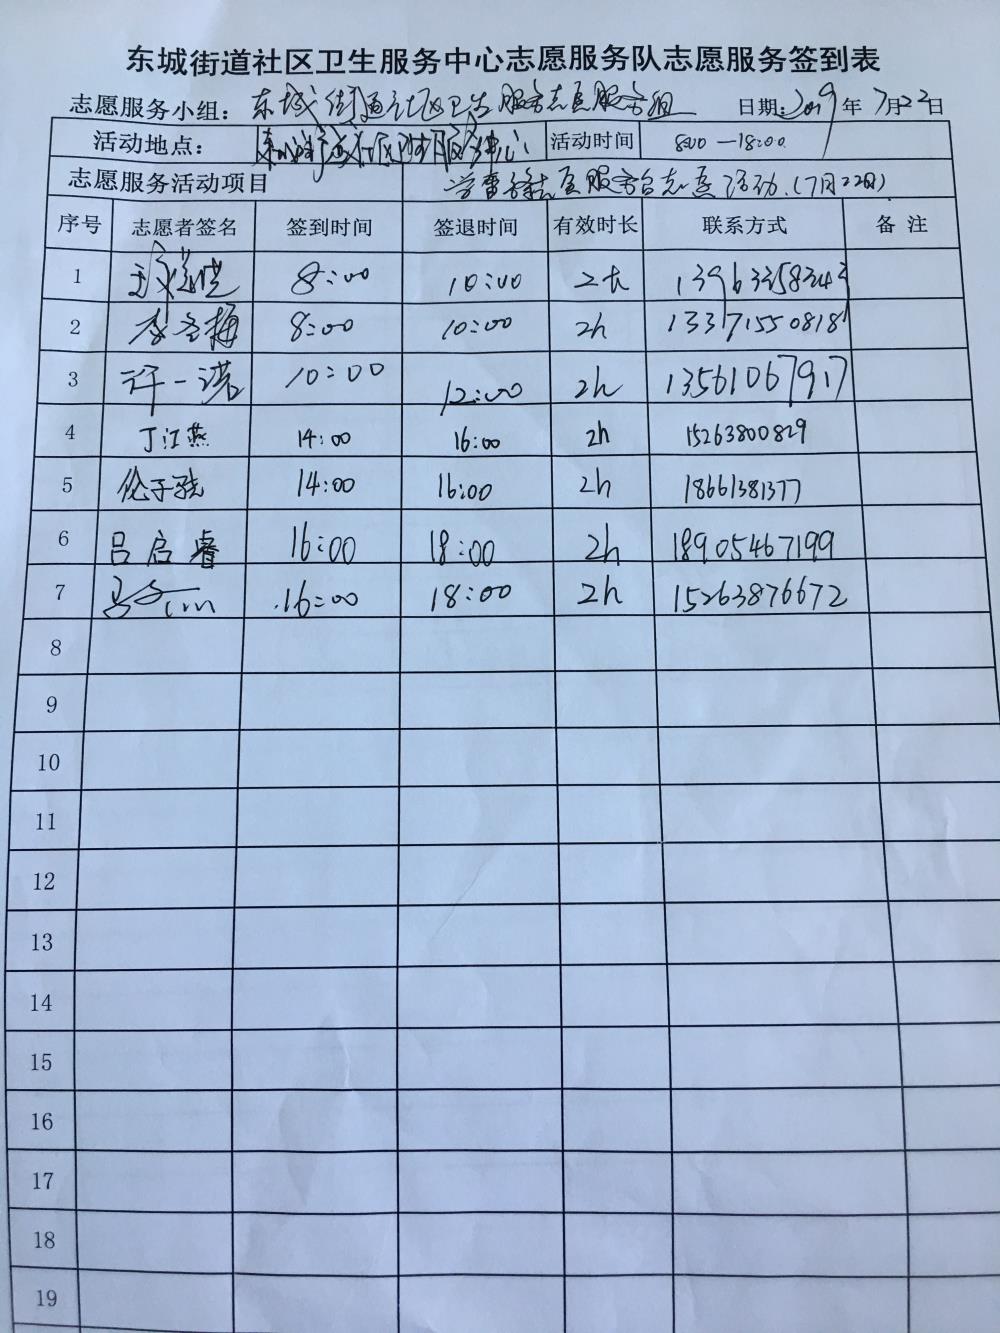 东城街道社区卫生服务中心志愿服务队志愿服务签到表
志愿服务小组：东城街道社区卫生服务志愿服务组 日期：2019年7月22日
活动地点： 活动时间 8:00—18:00
志愿服务活动项目 志愿服务台志愿活动（7月22日）
序号 志愿者签名 签到时间 签退时间 有效时长 联系方式 备注
1 8:00 10:00 2h
2 李冬梅 8:00 10:00 2h 13371550818
3 许一诺 10:00 12:00 2h 13561067917
4 丁江燕 14:00 16:00 2h 15263800829
5 伦子骁 14:00 16:00 2h 18661381377
6 吕启睿 16:00 18:00 2h 18905467199
7 16:00 18:00 2h 15263876672
8
9
10
11
12
13
14
15
16
17
18
19